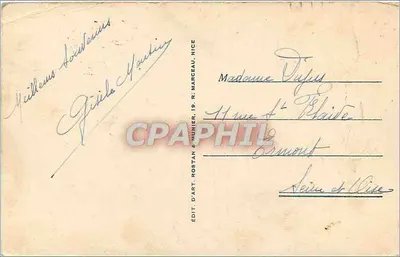 Meilleurs Souvenirs
Gisèle Martin
ÉDIT. D'ART. ROSTAN & MUNIER, 19, R. MARCEAU, NICE
CPAPHIL
Madame Dufus
11 rue Ste Plaide
Ermont
Seine et Oise